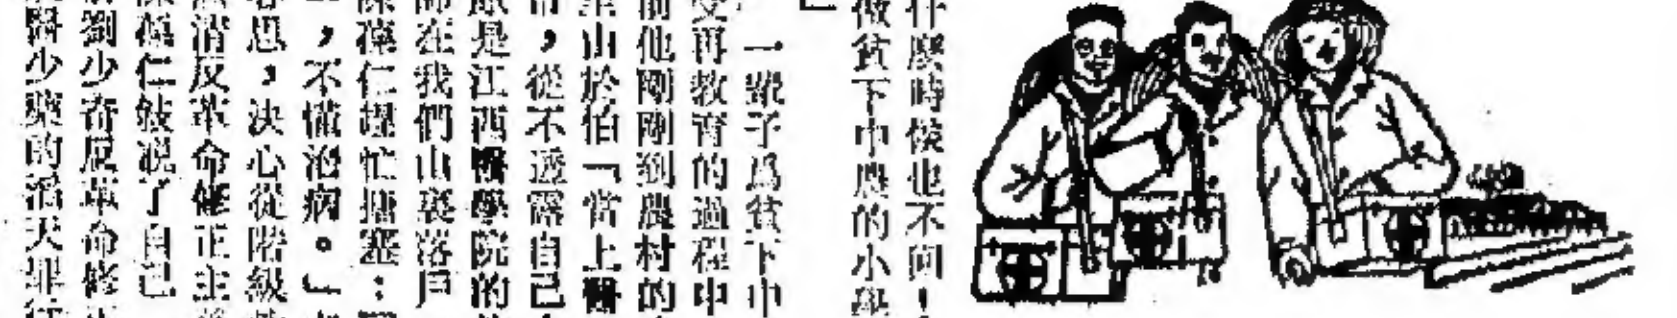 什麼時候也不向！
做貧下中農的小學
一輩子爲貧下中
受再教育的過程中
前他剛剛到農村的
於怕「當上醫
，從不透露自己
是江西醫學院的
師在我們山裏落戶
仁趕忙搪塞：
，不懂治病。」
思，決心從階級
清反革命修正主
仁被說了自己
劉少奇反革命修
醫少藥的滔天罪行